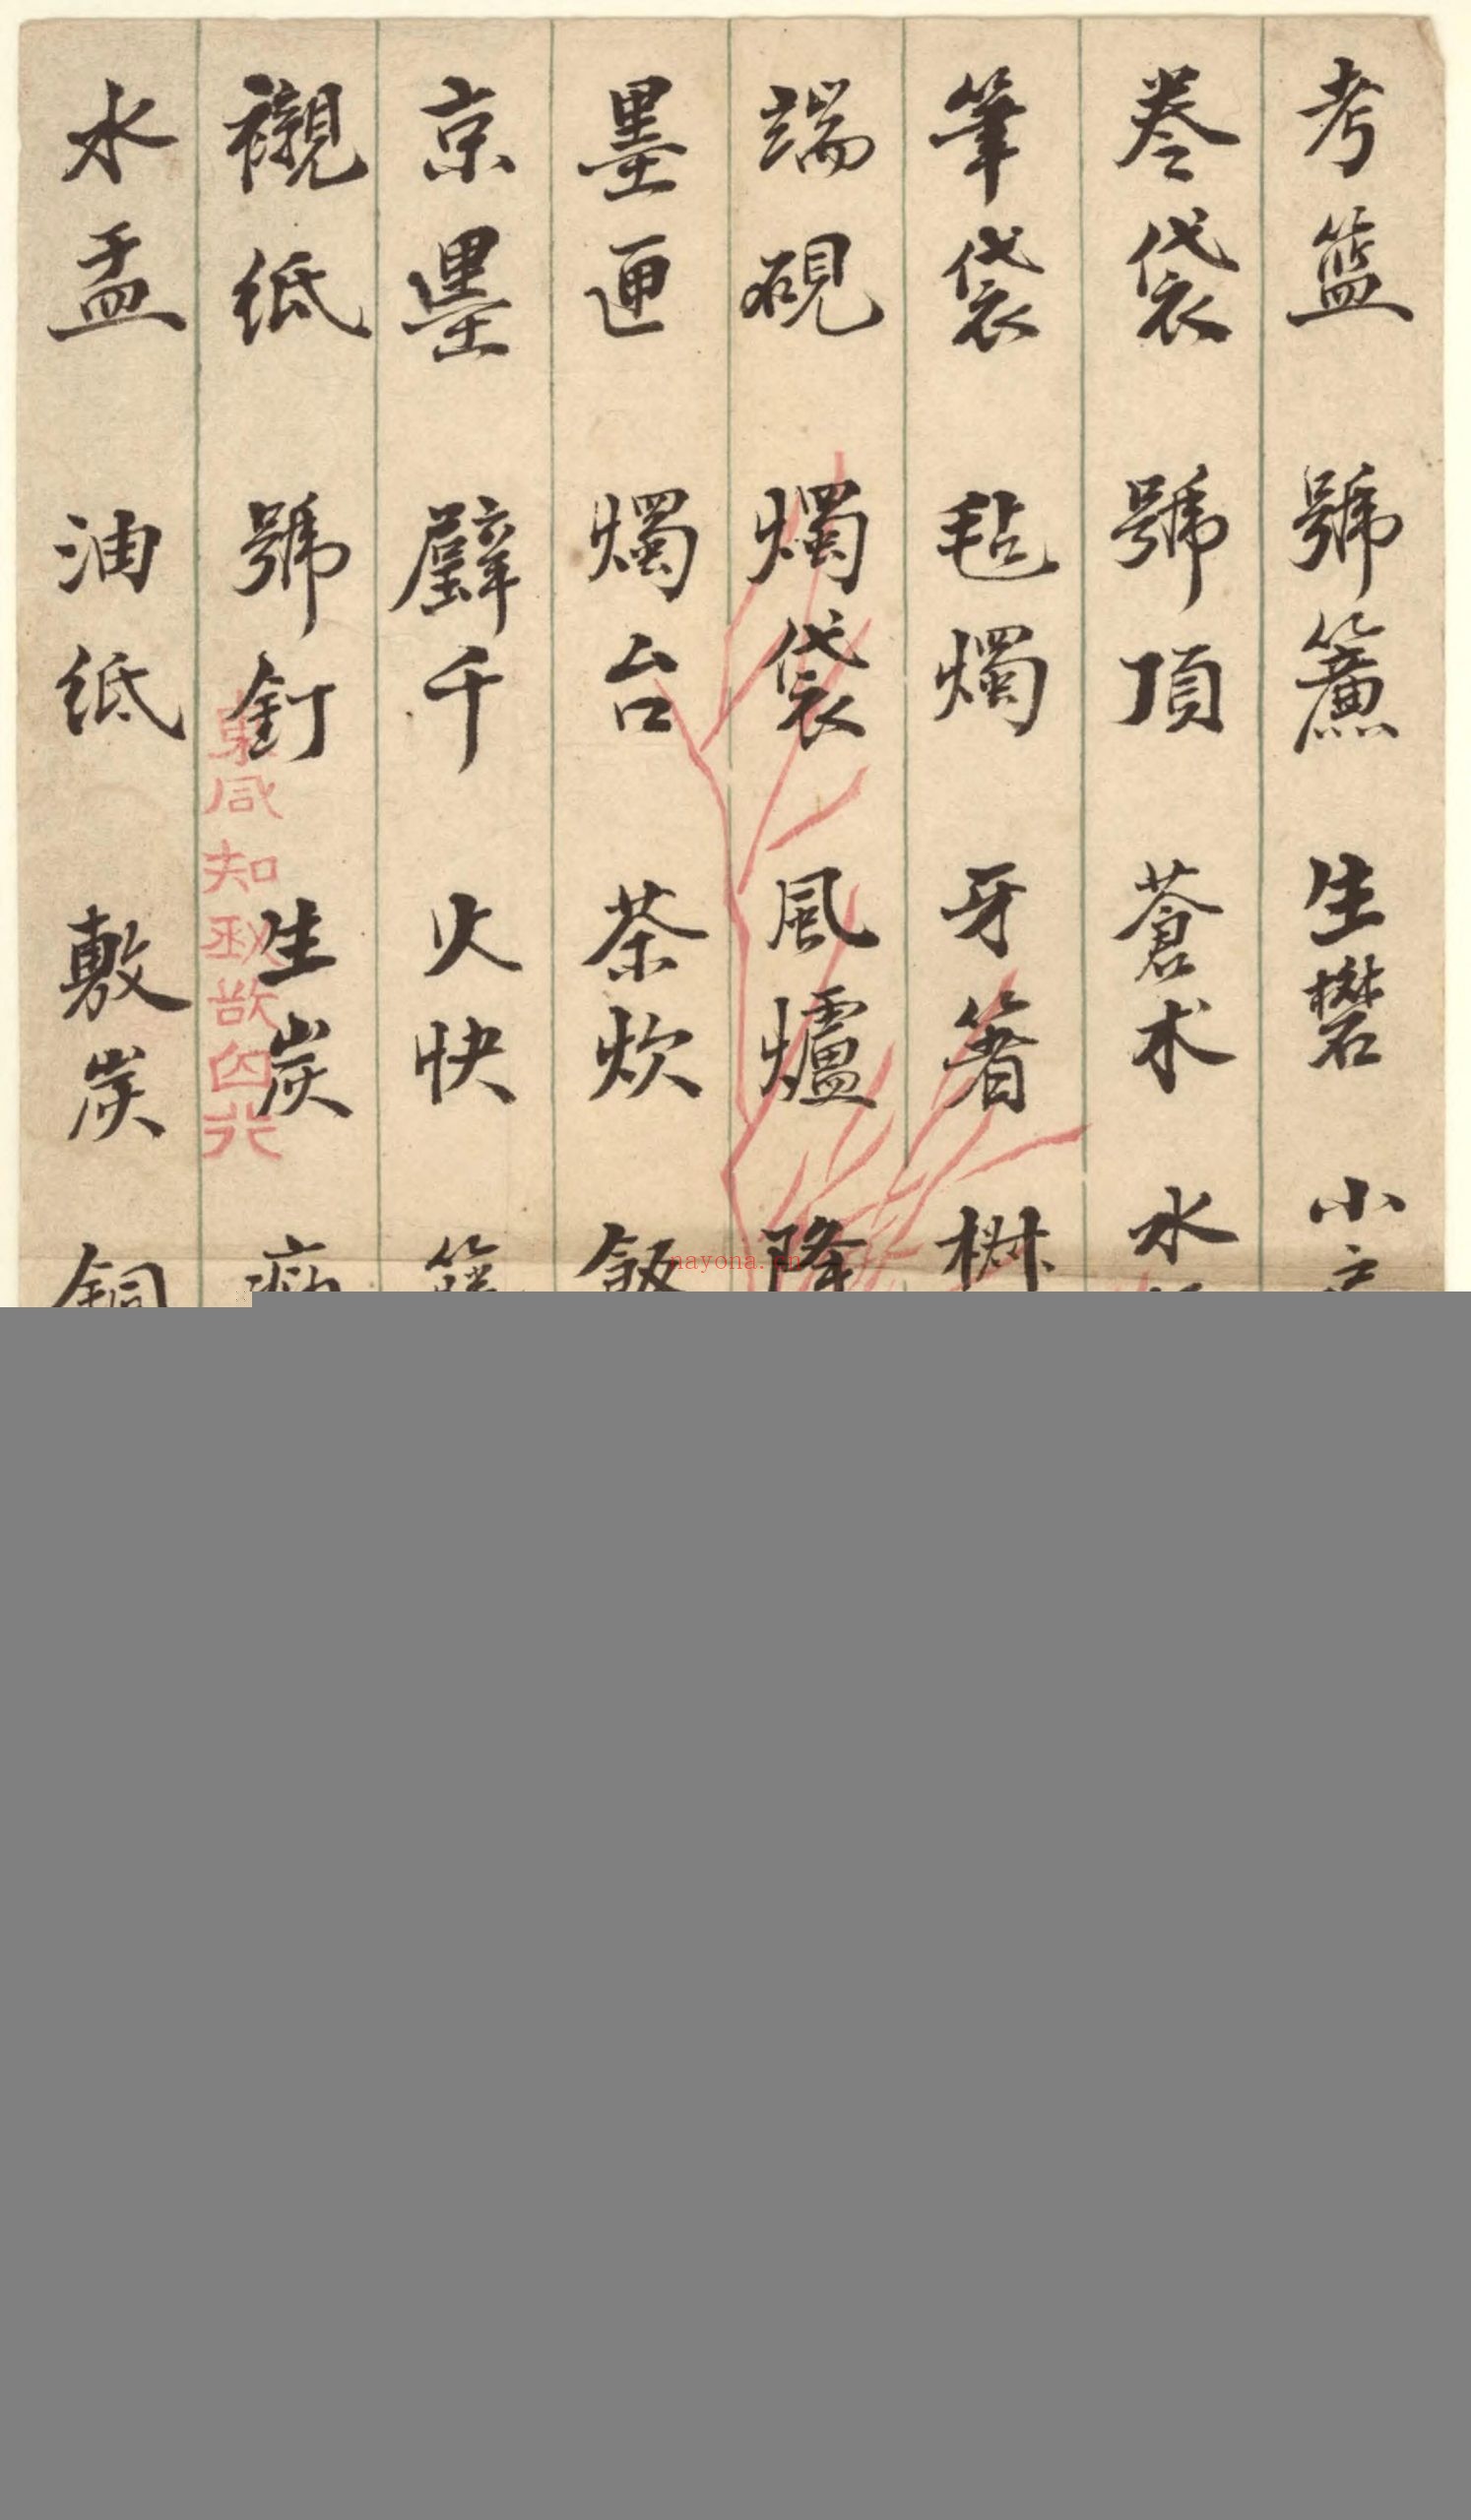 考籃 號簾 生礬 小
卷袋 號頂 蒼术 水
筆袋 毡燭 牙箸
端硯 燭袋 風爐 降
墨匣 燭台 茶炊 飯
京墨 千 火快
襯紙 號釘 生炭
水盂 油紙 敷炭 銅
nayona.cn